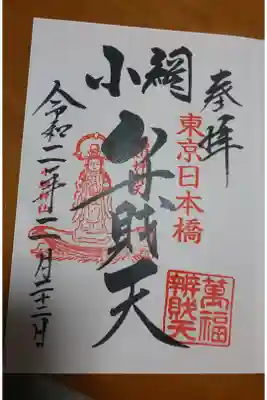 奉拝
東京日本橋
小網
弁財天
萬福
辨財天
令和二年二月二十二日